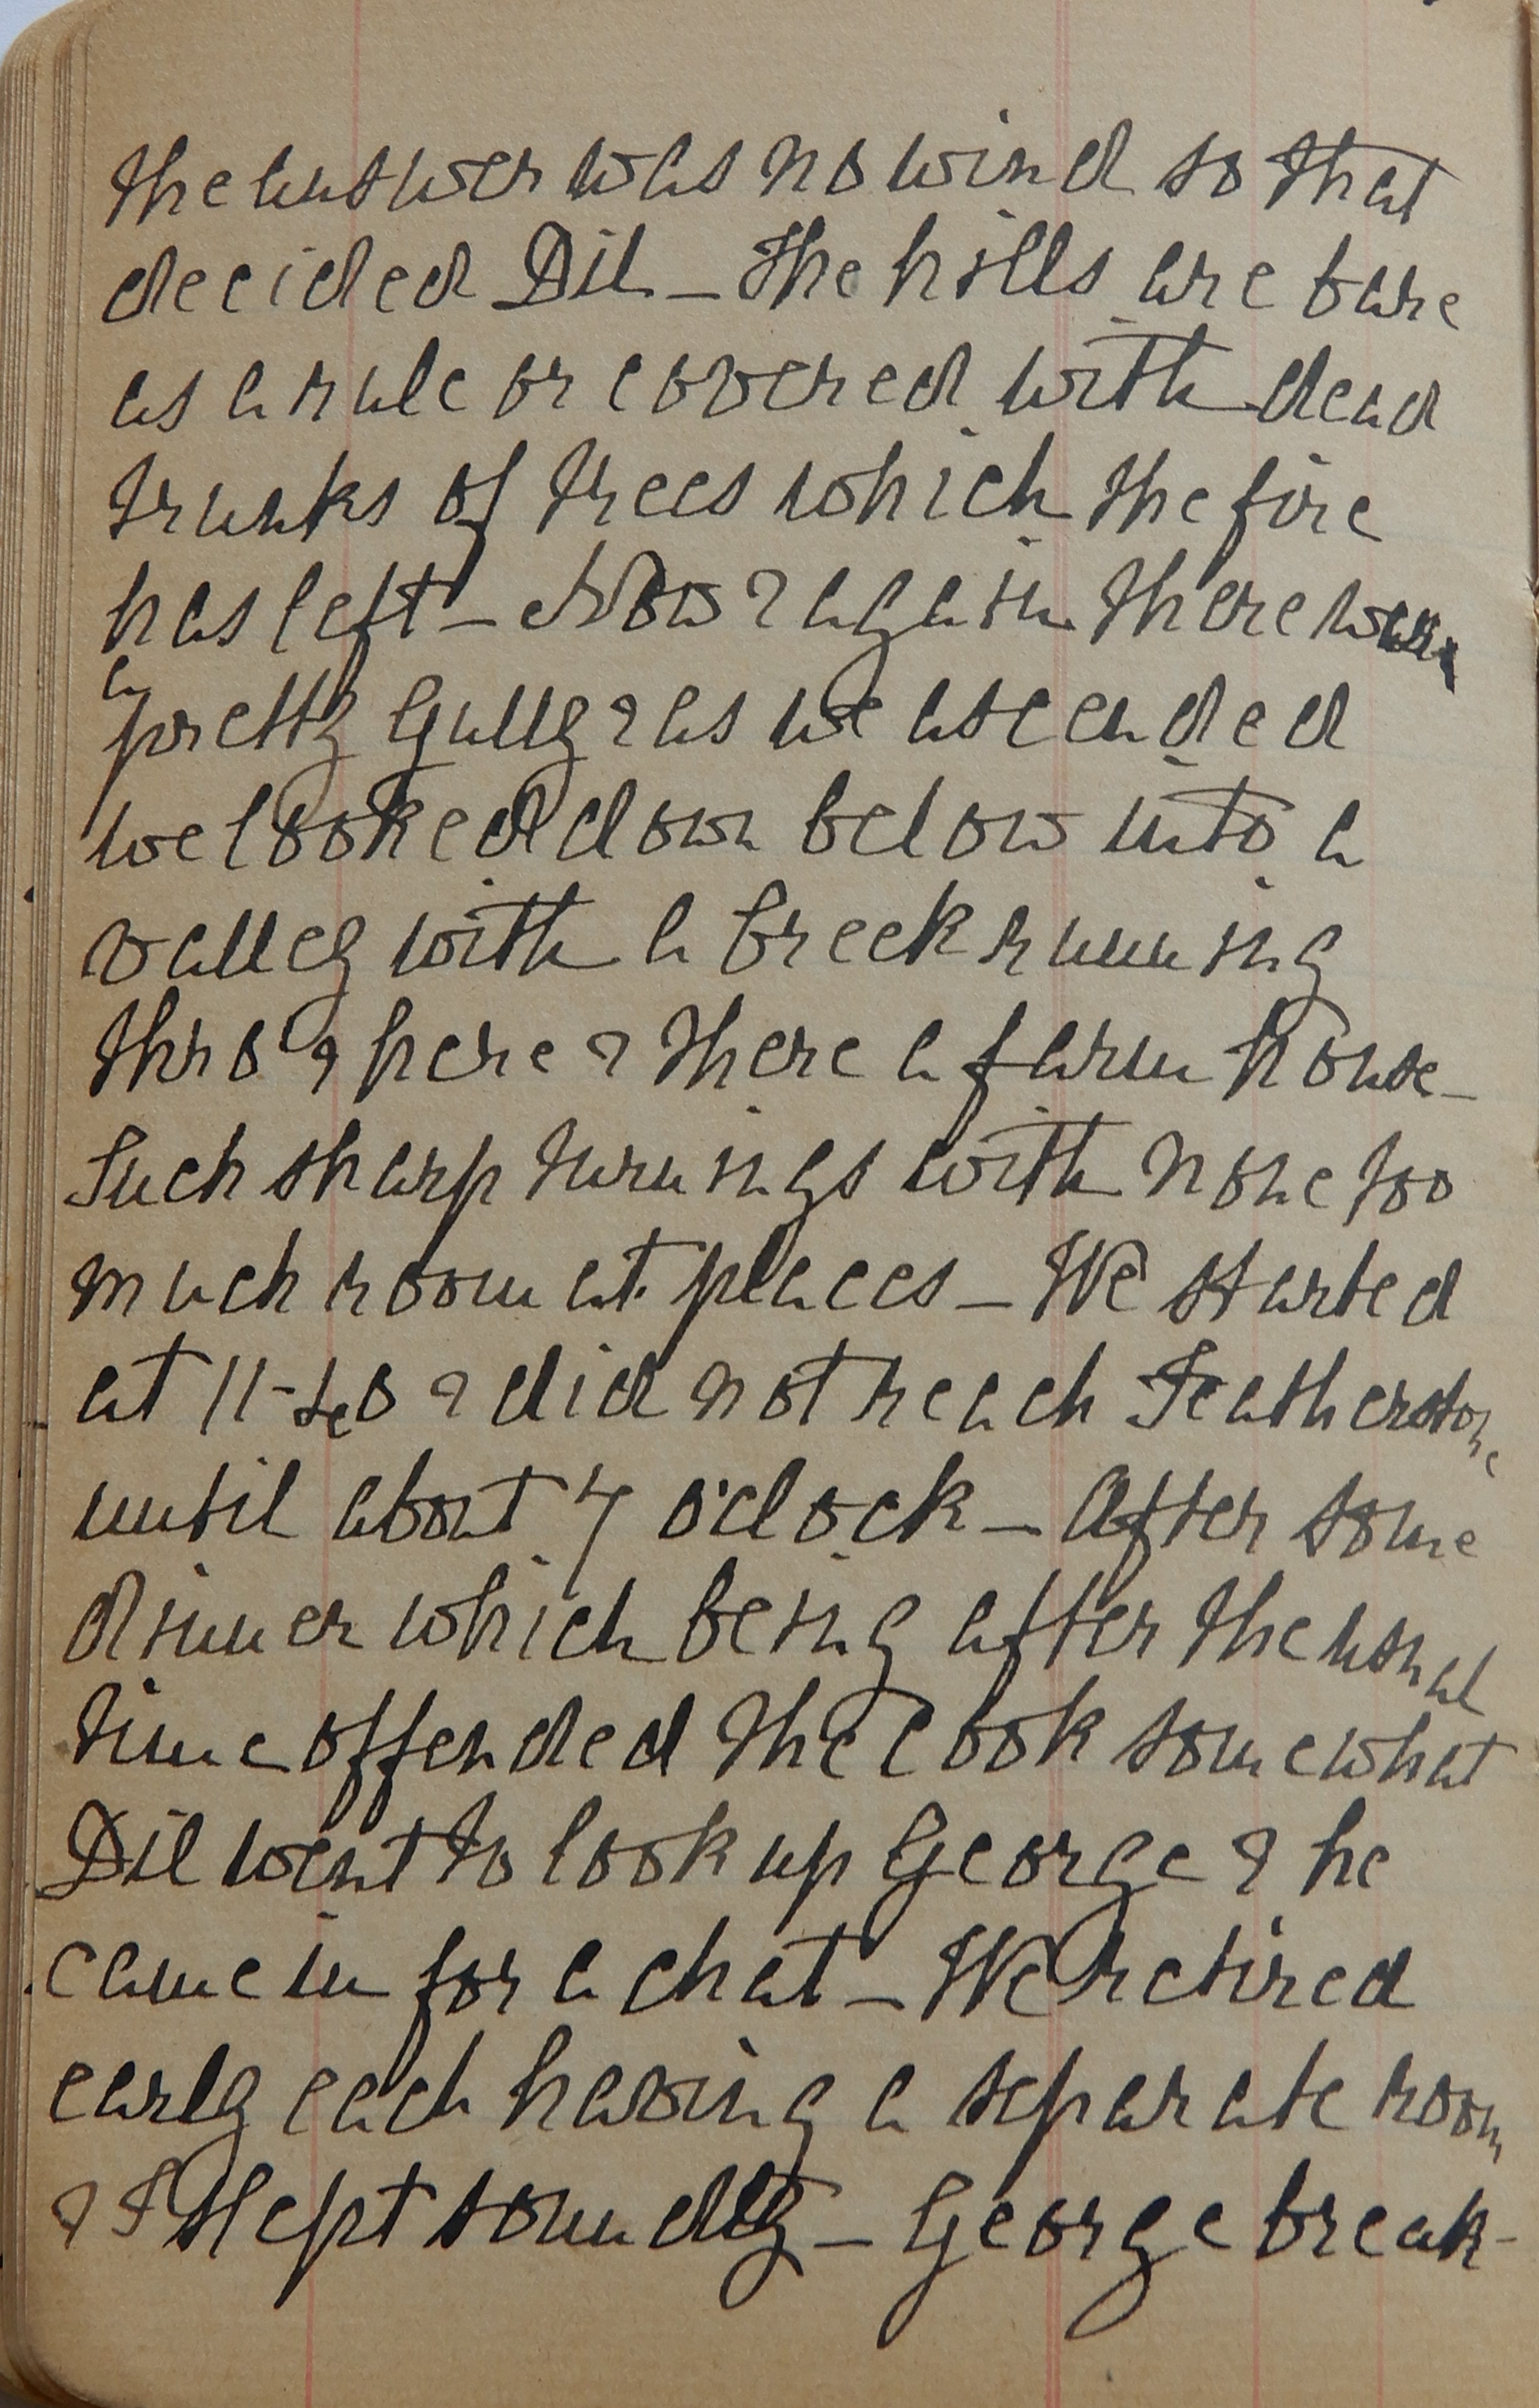 the answer was no wind so that
decided Dil – The hills are bare
as a rule or covered with dead
trunks of trees which the fire
has left – Now & again there was
a pretty gully & as we ascended
we looked down below into a
valley with a creek running
thro' & here & there a farm house –
Such sharp turnings with none too
much room at places – We started
at 11-40 & did not reach Featherstone
until about 4 o'clock – After some
dinner which being after the usual
time offended the cook somewhat
Dil went to look up George & he
came in for a chat – We retired
early each having a separate room
& I slept soundly – George break-